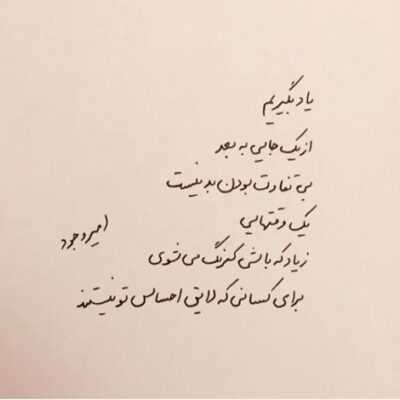 یاد بگیریم
از یک جایی به بعد
بی تفاوت بودن بد نیست
یک وقتهایی
زیاد که باشی کمرنگ می شوی
برای کسانی که لایق احساس تو نیستند
امیر وجود